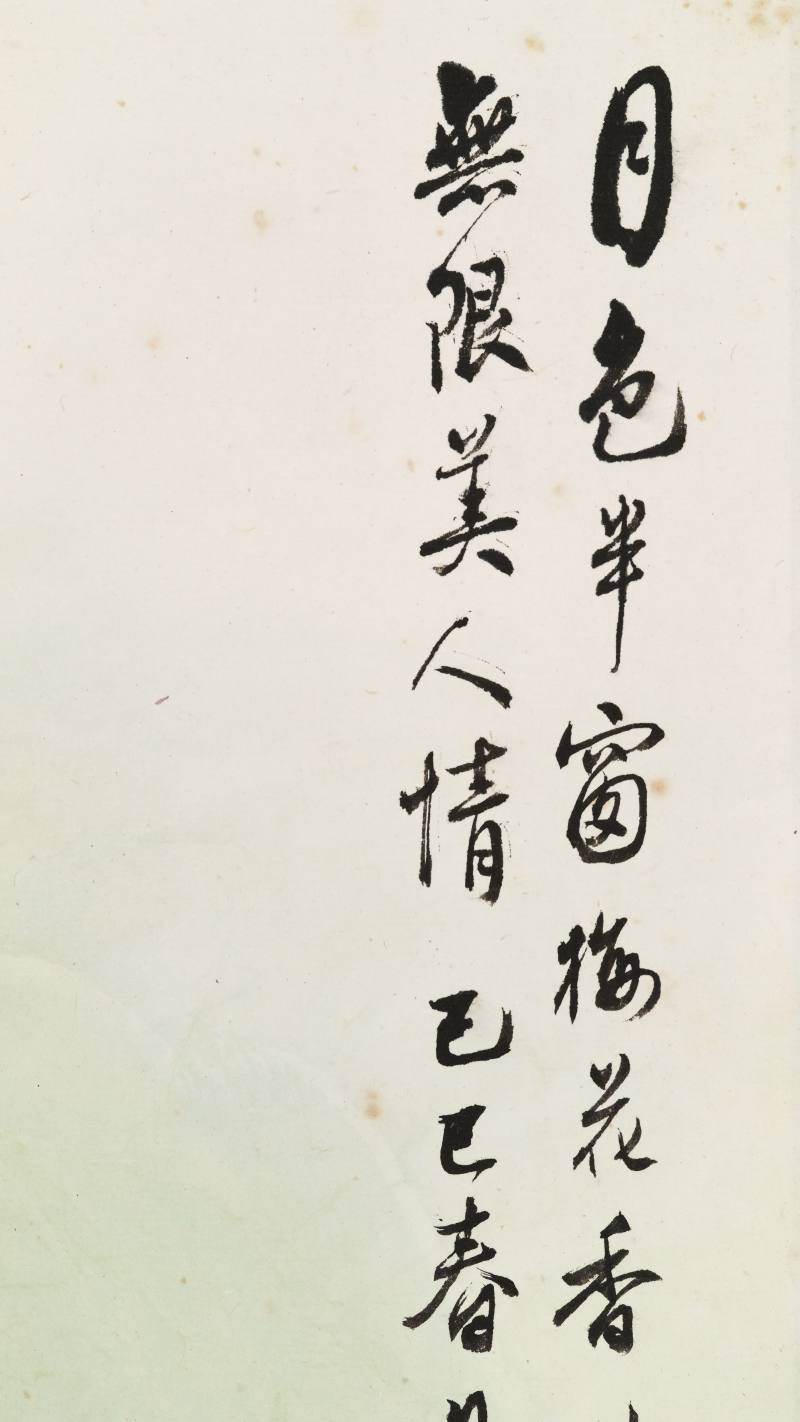 月色半窗梅花香
無限美人情 己巳春